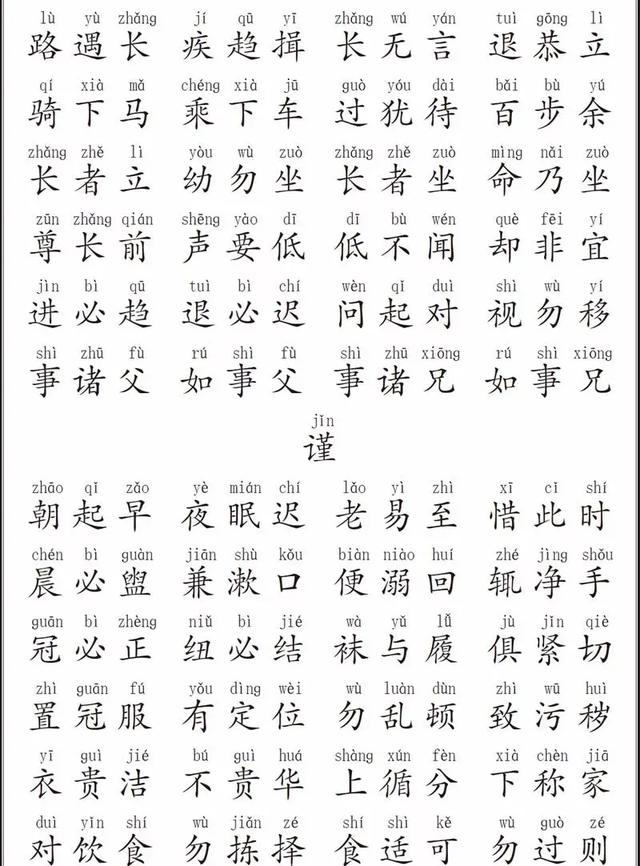 lù yù zhǎng jí qū yī zhǎng wú yán tuì gōng lì
路遇长 疾趋揖 长无言 退恭立
qí xià mǎ chéng xià jū guò yóu dài bǎi bù yú
骑下马 乘下车 过犹待 百步余
zhǎng zhě lì yòu wù zuò zhǎng zhě zuò mìng nǎi zuò
长者立 幼勿坐 长者坐 命乃坐
zūn zhǎng qián shēng yào dī dī bù wén què fēi yí
尊长前 声要低 低不闻 却非宜
jìn bì qū tuì bì chí wèn qǐ duì shì wù yí
进必趋 退必迟 问起对 视勿移
shì zhū fù rú shì fù shì zhū xiōng rú shì xiōng
事诸父 如事父 事诸兄 如事兄
jǐn
谨
zhāo qǐ zǎo yè mián chí lǎo yì zhì xī cǐ shí
朝起早 夜眠迟 老易至 惜此时
chén bì guàn jiān shù kǒu biàn niào huí zhé jìng shǒu
晨必盥 兼漱口 便溺回 辄净手
guān bì zhèng niǔ bì jié wà yǔ lǚ jù jǐn qiè
冠必正 纽必结 袜与履 俱紧切
zhì guān fú yǒu dìng wèi wù luàn dùn zhì wū huì
置冠服 有定位 勿乱顿 致污秽
yī guì jié bú guì huá shàng xún fèn xià chèn jiā
衣贵洁 不贵华 上循分 下称家
duì yǐn shí wù jiǎn zé shí shì kě wù guò zé
对饮食 勿拣择 食适可 勿过则